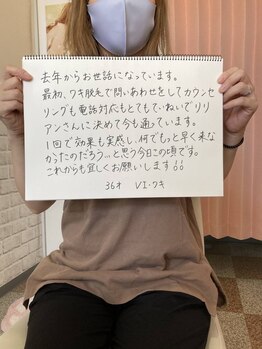 去年からお世話になっています。
最初、ワキ脱毛で問いあわせをしてカウンセ
リングも電話対応もとてもていねいでリリ
アンさんに決めて今も通っています。
1回で効果も実感し、何でもっと早く来な
かったのだろう…と思う今日この頃です。
これからも宜しくお願いします!!
36才 VI・ワキ